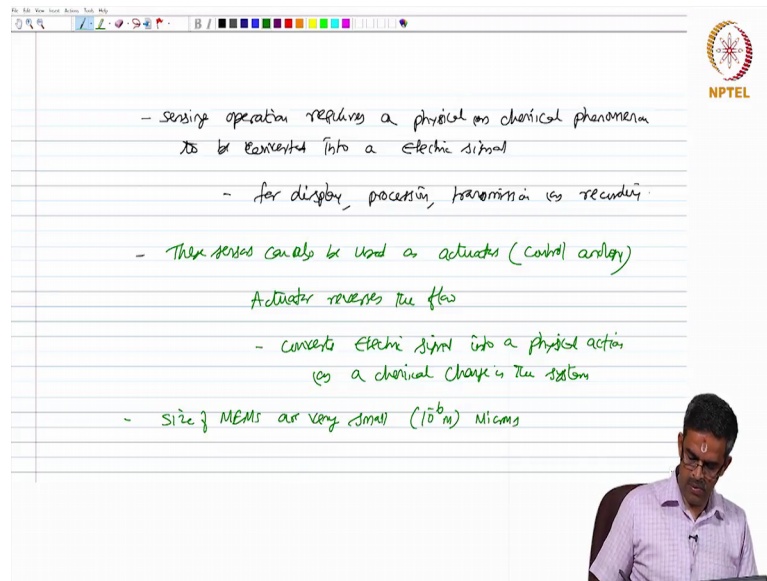 File Edit View Insert Actions Tools Help
B I
NPTEL
- Sensing operation requires a physical or chemical phenomenon
to be converted into a electric signal
- for display, processing, transmission or recording.
- These sensors can also be used as actuators (control analogy)
Actuator reverses the flow
- converts Electric signal into a physical action
or a chemical change in the system
- Size of MEMS are very small (10⁻⁶m) Microns